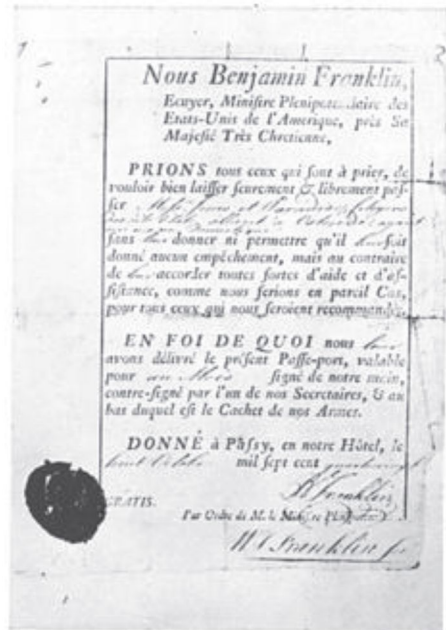 Nous Benjamin Franklin,
Ecuyer, Ministre Plenipotentiaire des
Etats-Unis de l'Amerique, près Sa
Majesté Très Chretienne,
PRIONS tous ceux qui sont à prier, de
vouloir bien laisser seurement & librement pas-
ser
sans leur donner ni permettre qu'il leur soit
donné aucun empêchement, mais au contraire
de leur accorder toutes sortes d'aide et d'as-
sistance, comme nous ferions en pareil Cas,
pour tous ceux qui nous seroient recommandés.
EN FOI DE QUOI nous leur
avons délivré le présent Passe-port, valable
pour un Mois signé de notre main,
contre-signé par l'un de nos Secretaires, & au
bas duquel est le Cachet de nos Armes.
DONNÉ à Passy, en notre Hôtel, le
huit Octobre mil sept cent
B Franklin
GRATIS.
Par Ordre de M. le Ministre Plenipotentiaire
W T Franklin